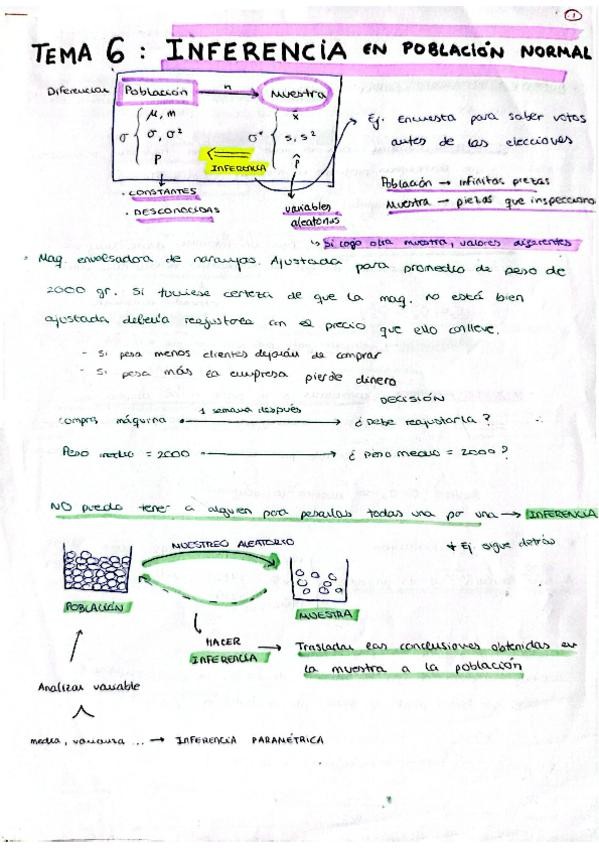 1
TEMA 6 : INFERENCIA EN POBLACIÓN NORMAL
Diferenciar Población n Muestra
μ, m x̄
θ σ, σ² θ* s, s²
p p̂
INFERENCIA
Ej. Encuesta para saber votos
antes de las elecciones
· CONSTANTES
· DESCONOCIDAS
variables
aleatorias
Población → infinitas piezas
Muestra → piezas que inspecciono
↳ Si cojo otra muestra, valores diferentes
· Maq. envolsadora de naranjas. Ajustada para promedio de peso de
2000 gr. Si tuviese certeza de que la maq. no está bien
ajustada debería reajustarla con el precio que ello conlleve.
- Si pesa menos clientes dejarán de comprar
- Si pesa más la empresa pierde dinero
DECISIÓN
compro máquina 1 semana después → ¿Debe reajustarla?
Peso medio = 2000 → ¿Peso medio = 2000?
NO puedo tener a alguien para pesarlas todas una por una → INFERENCIA
* Ej sigue detrás
MUESTREO ALEATORIO
POBLACIÓN
MUESTRA
HACER
INFERENCIA → Trasladar las conclusiones obtenidas en
la muestra a la población
Analizar variable
media, varianza ... → INFERENCIA PARAMÉTRICA